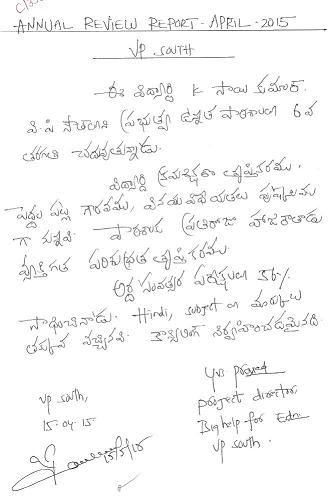 ANNUAL REVIEW REPORT - APRIL - 2015
VP SOUTH
ఈ విద్యార్థి K సాయి కుమార్
వి.పి సౌత్ ప్రభుత్వ ఉన్నత పాఠశాలలో 6వ
తరగతి చదువుతున్నాడు.
విద్యార్థి క్రమశిక్షణ తృప్తికరము.
పెద్దల పట్ల గౌరవము, వినయ విధేయతలు పుష్కలము
గా ఉన్నవి. పాఠశాల ప్రతిరోజూ హాజరౌతాడు
వ్యక్తిగత పరిశుభ్రత తృప్తికరము.
అర్ధ సంవత్సర పరీక్షలలో 56%
సాధించినాడు. Hindi, subject లో మార్కులు
తక్కువ వచ్చినవి. కౌన్సిలింగ్ నిర్వహించడమైనది.
VP South,
15.04.15
YB Prasad
project director,
Bighelp for Edn
VP South.